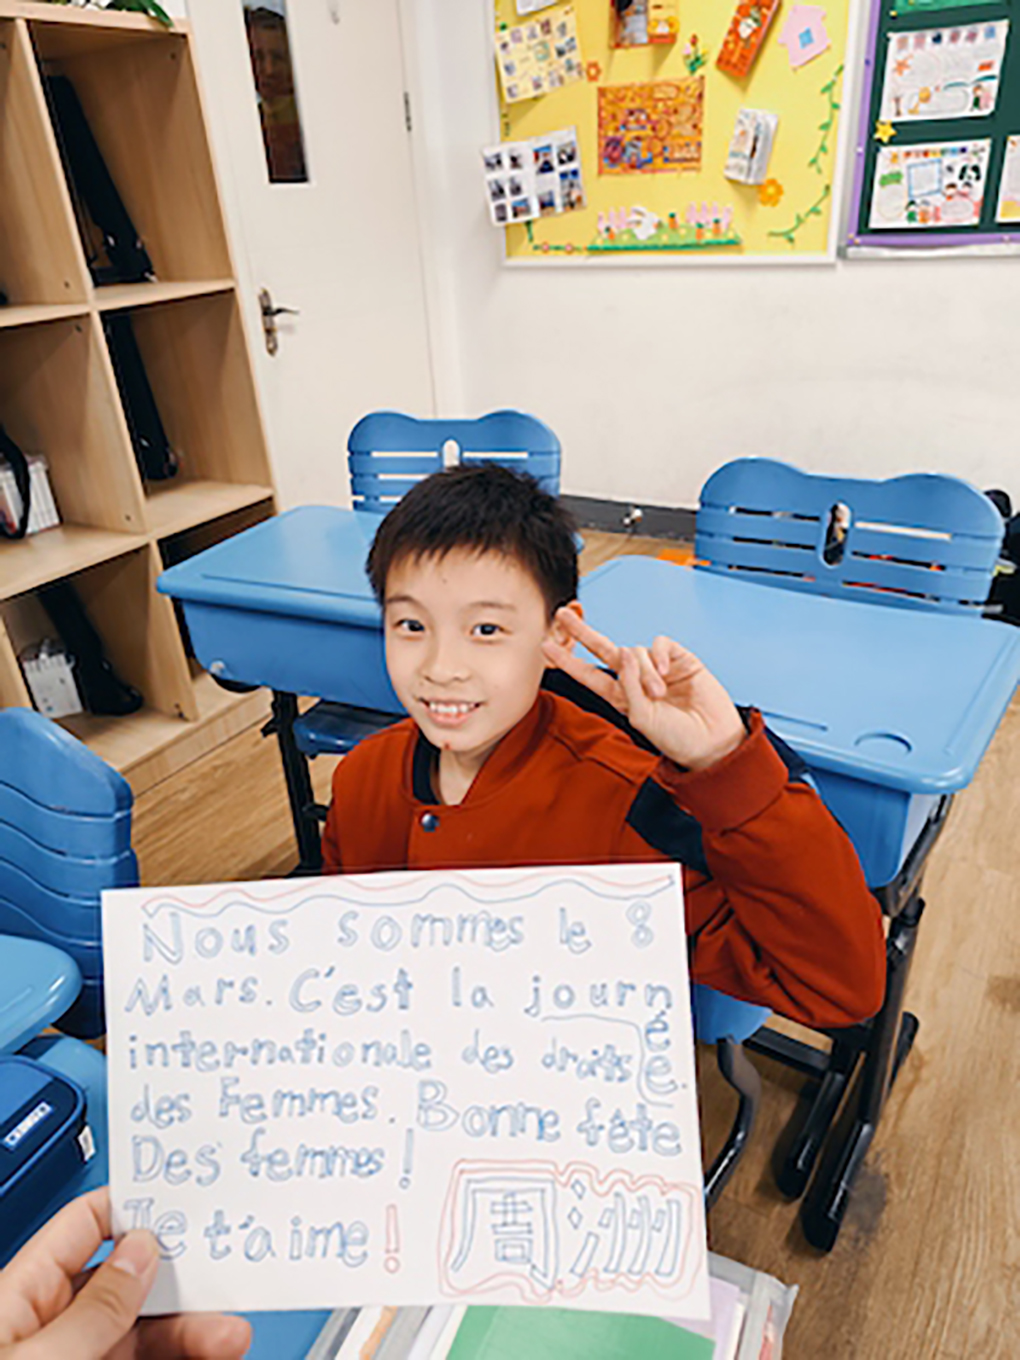 Nous sommes le 8
Mars. C'est la journée
internationale des droits
des Femmes. Bonne fête
Des femmes!
Je t'aime!
周洲